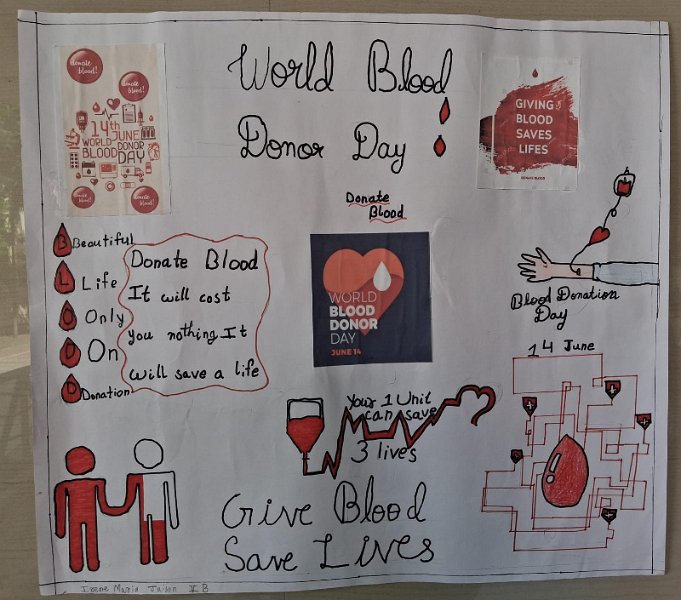 World Blood
Donor Day
donate blood!
donate blood!
14th
JUNE
WORLD
BLOOD DONOR
DAY
GIVING
BLOOD
SAVES
LIFES
DONATE BLOOD
Donate
Blood
B Beautiful
L Life
O Only
O On
D Donation
Donate Blood
It will cost
you nothing It
will save a life
WORLD
BLOOD
DONOR
DAY
JUNE 14
Blood Donation
Day
14 June
Your 1 Unit
can save
3 lives
Give Blood
Save Lives
donate blood!
donate blood!
Irene Maria